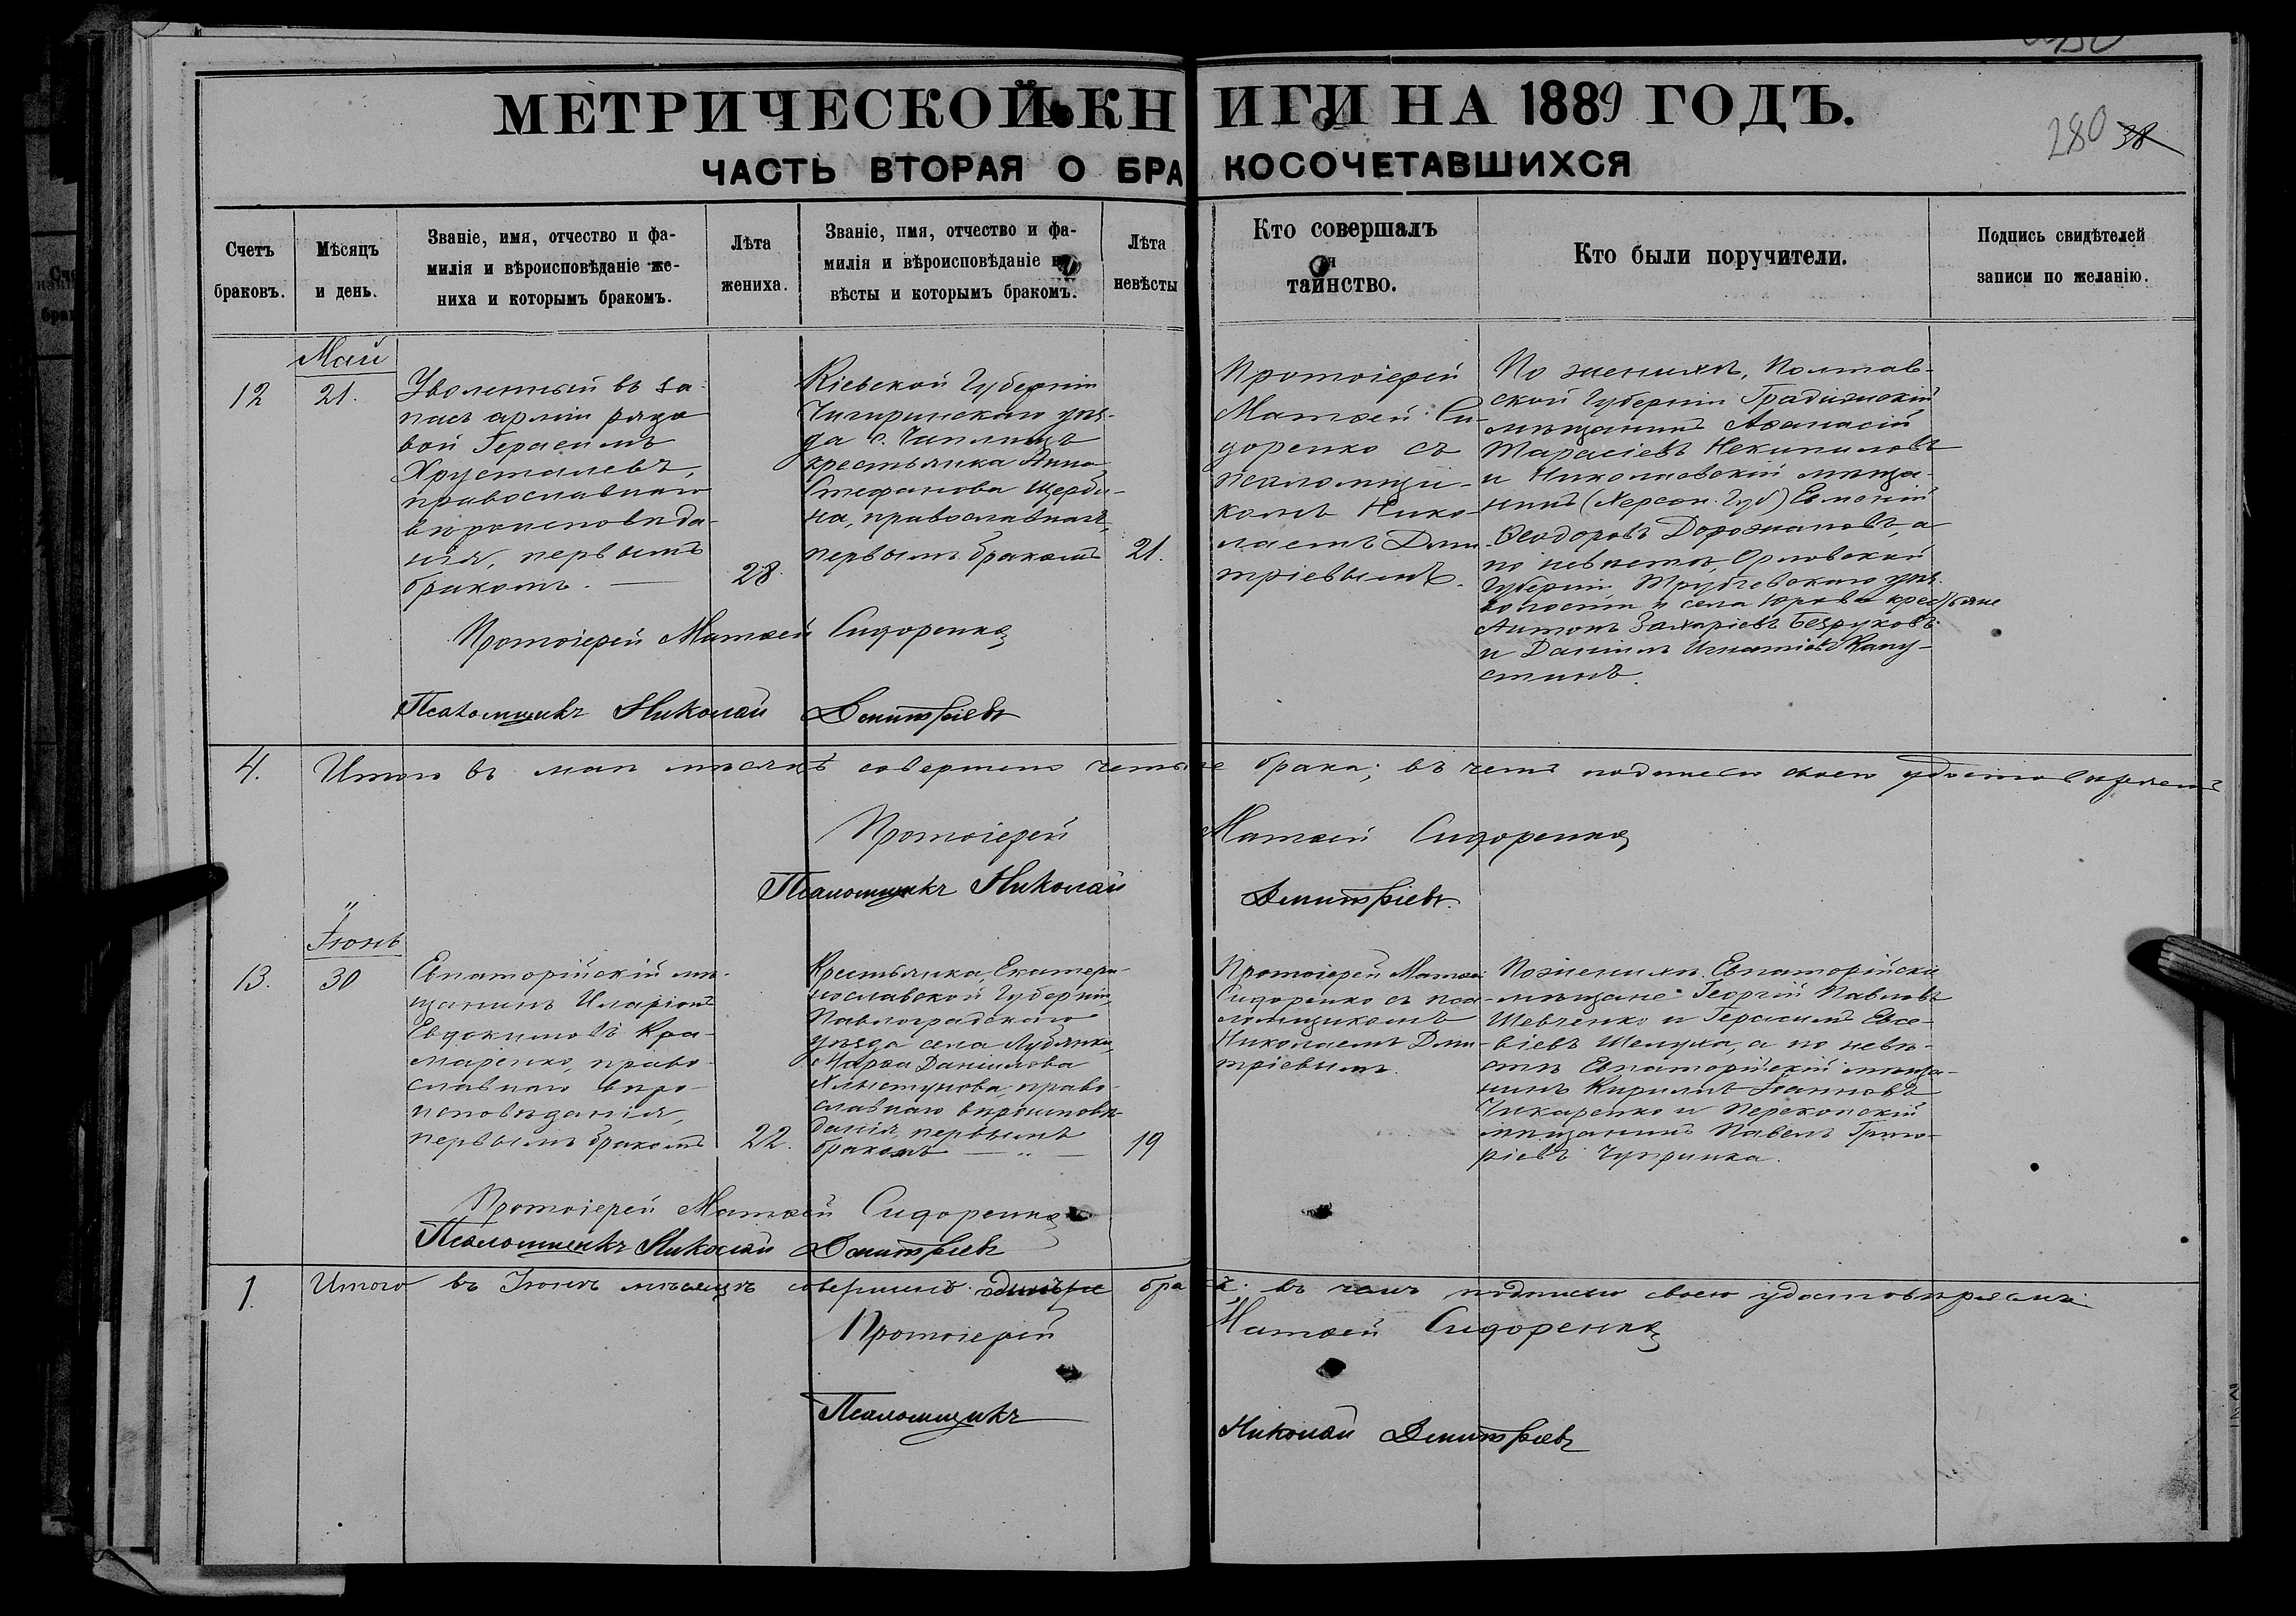 280 38
МЕТРИЧЕСКОЙ КНИГИ НА 1889 ГОДЪ.
ЧАСТЬ ВТОРАЯ О БРАКОСОЧЕТАВШИХСЯ
Счетъ
браковъ.
Мѣсяцъ
и день.
Званіе, имя, отчество и фа-
милія и вѣроисповѣданіе же-
ниха и которымъ бракомъ.
Лѣта
жениха.
Званіе, имя, отчество и фа-
милія и вѣроисповѣданіе не
вѣсты и которымъ бракомъ.
Лѣта
невѣсты
Кто совершалъ
таинство.
Кто были поручители.
Подпись свидѣтелей
записи по желанію.
12
Май
21.
Уволенный въ за-
пасъ арміи рядо
вой Герасимъ
Хрусталевъ,
православнаго
вѣроисповѣда-
нія, первымъ
бракомъ.
28.
Кіевской Губерніи
Чигиринскаго уѣз-
да с. Чаплищъ
крестьянка Анна
Стефанова Щерби-
на, православная,
первымъ бракомъ
21.
Протоіерей
Матѳей Си-
доренко съ
псаломщи-
комъ Нико-
лаемъ Дми-
тріевымъ.
По женихѣ, Полтав-
ской Губерніи Градижскій
мѣщанинъ Аѳанасій
Тарасіевъ Некипиловъ
и Николаевскій мѣща-
нинъ (Херсон. Губ)
Ѳеодоровъ Дорожановъ, а
по невѣстѣ, Орловской
Губерніи, Трубчевскаго уѣз.
волости и села Юрова крестьяне
Антонъ Захаріевъ Безруковъ
и Даніилъ Игнатіевъ Капу-
стинъ.
Протоіерей Матѳей Сидоренко
Псаломщикъ Николай Дмитріевъ
4. Итого въ маѣ мѣсяцѣ совершено четыре брака; въ чемъ подписью своею удостовѣряемъ
Протоіерей Матѳей Сидоренко
Псаломщикъ Николай Дмитріевъ.
13.
Іюнь
30
Евпаторійскій мѣ-
щанинъ Иларіонъ
Евдокимовъ Кра-
маренко, право-
славнаго вѣро-
исповѣданія,
первымъ бракомъ
22.
Крестьянка, Екатери-
нославской Губерніи,
Павлоградскаго
уѣзда села Лубянки,
Марѳа Даніилова
Хлыстунова, право-
славнаго вѣроисповѣ-
данія, первымъ
бракомъ
19
Протоіерей Матѳей
Сидоренко съ пса-
ломщикомъ
Николаемъ Дми-
тріевымъ.
По женихѣ. Евпаторійскіе
мѣщане Георгій Павловъ
Шевченко и Герасимъ Евсе-
віевъ Шелуха, а по невѣ-
стѣ Евпаторійскій мѣща-
нинъ Кирилъ Іоанновъ
Чикаренко и Перекопскій
мѣщанинъ Павелъ Григо-
ріевъ Чупринка.
Протоіерей Матѳей Сидоренко
Псаломщикъ Николай Дмитріевъ
1. Итого въ Іюнѣ мѣсяцѣ совершенъ одинъ бракъ; въ чемъ подписью своею удостовѣряемъ
Протоіерей Матѳей Сидоренко
Псаломщикъ Николай Дмитріевъ